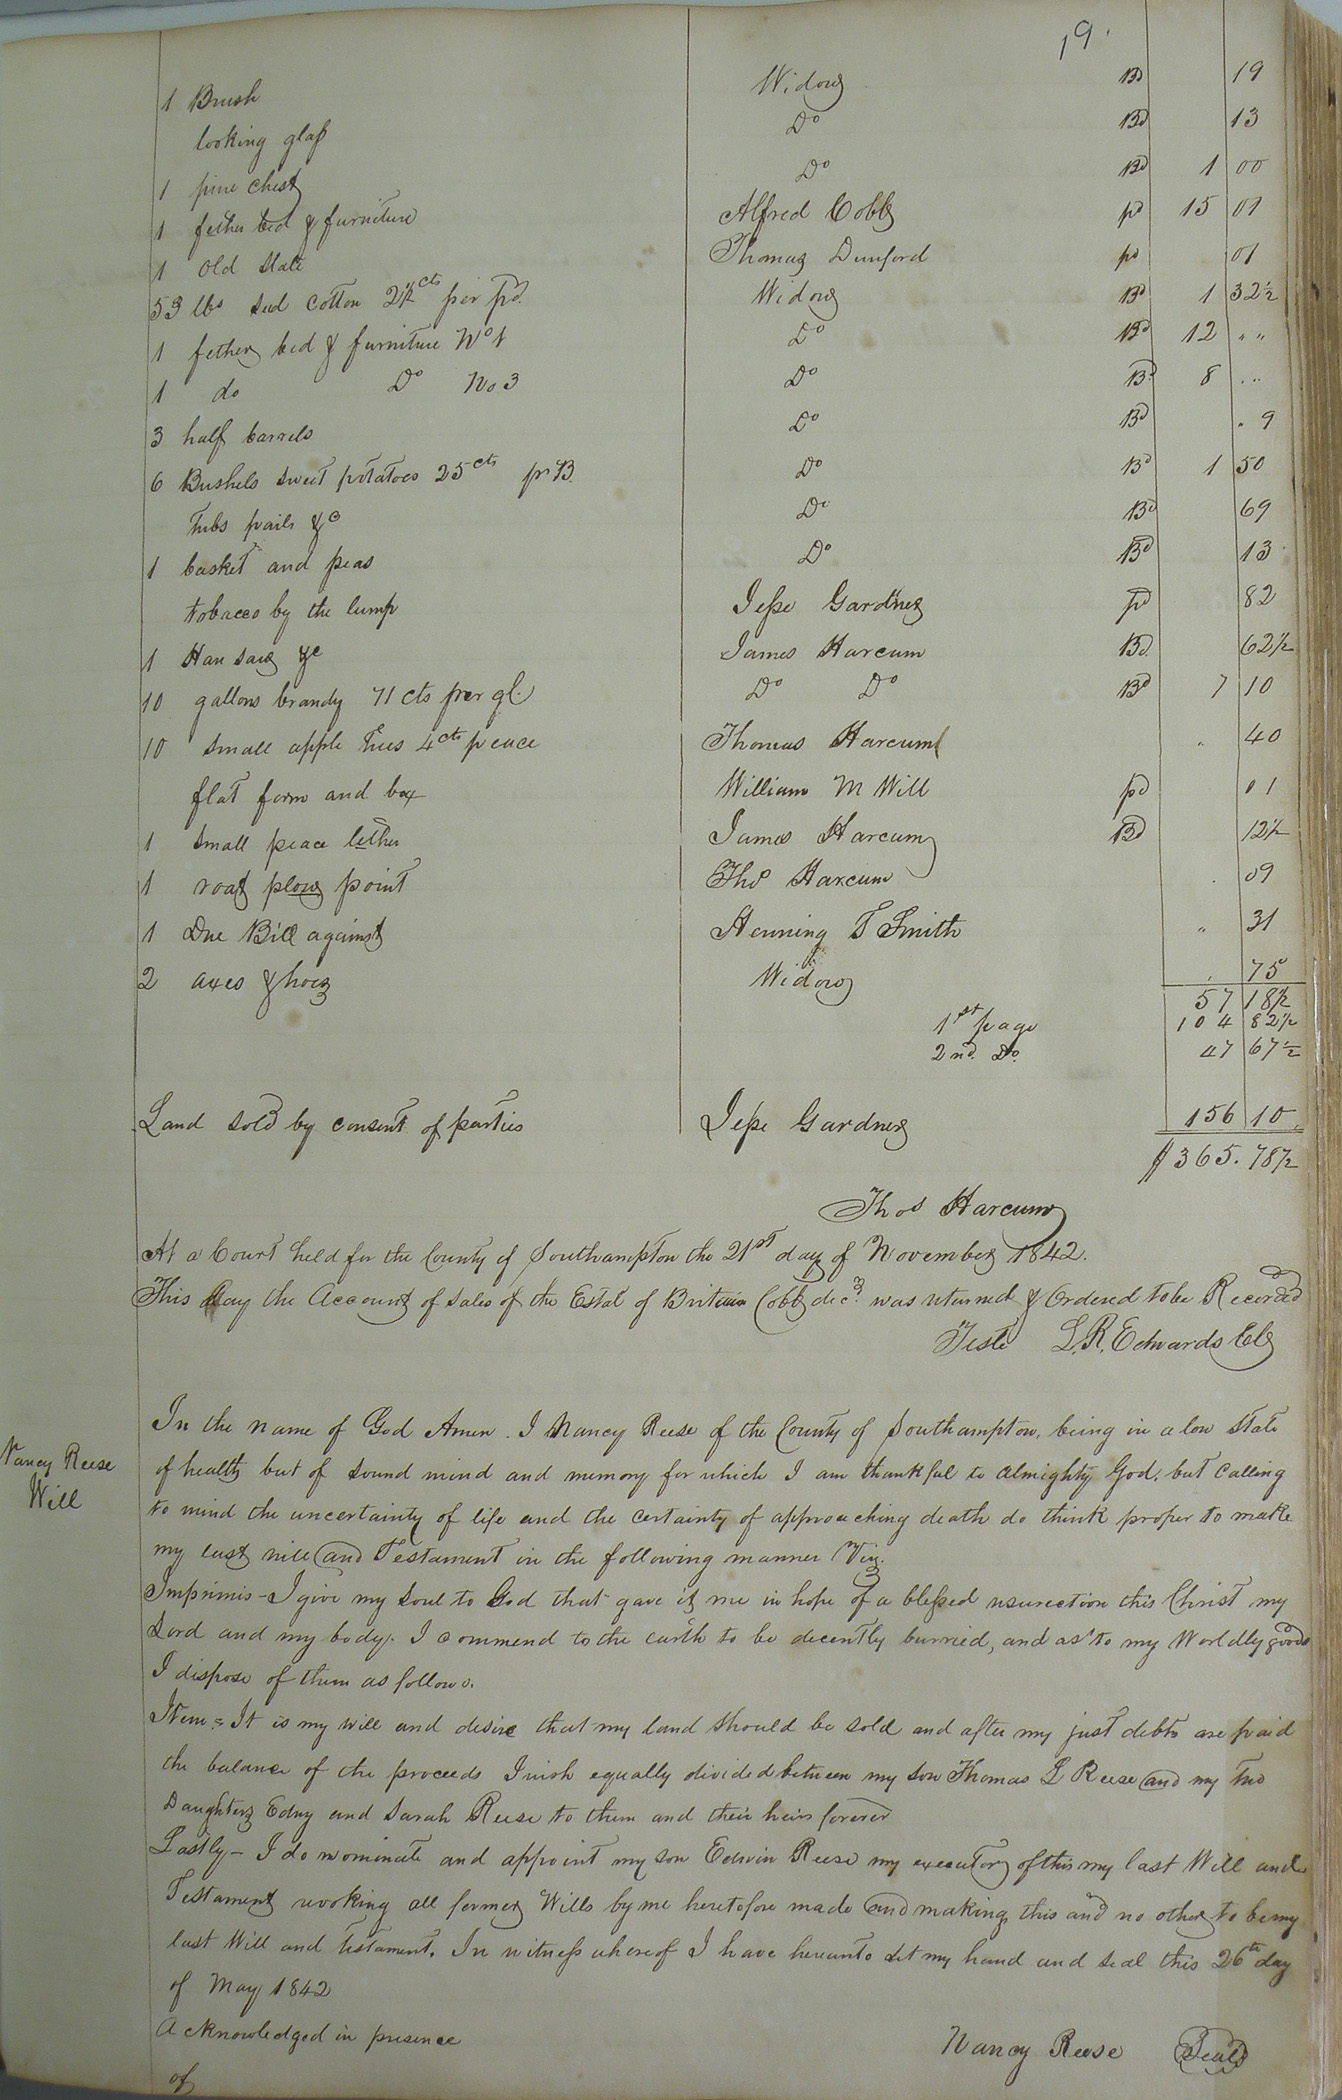 19.
1 Brush Widow Bd 19
looking glass Do Bd 13
1 pine chest Do Bd 1 00
1 fether bed & furniture Alfred Cobb pd 15 01
1 old slate Thomas Dunford pd 01
53 lbs seed cotton 2½ cts per pd. Widow Bd 1 32½
1 fether bed & furniture No 1 Do Bd 12 " "
1 do Do No 3 Do Bd 8 " "
3 half barrels Do Bd 9
6 Bushels sweet potatoes 25 cts pr B. Do Bd 1 50
tubs pails &c Do Bd 69
1 basket and peas Do Bd 13
tobacco by the lump Jesse Gardner pd 82
1 Han saw &c James Harcum Bd 62½
10 gallons brandy 71 cts per gl. Do Do Bd 7 10
10 small apple trees 4 cts peace Thomas Harcum " 40
flat form and box William M Will pd 01
1 small peace lether James Harcum Bd 12½
1 plow point Thos Harcum 09
1 Due Bill against Henning T Smith " 31
2 axes & hoes Widow 75
57 18½
1st page 104 82½
2nd. Do. 47 67½
Land sold by consent of parties Jesse Gardner 156 10
$365.78½
Thos Harcum
At a Court held for the County of Southampton the 21st day of November 1842.
This day the Account of sales of the Estate of Britain Cobb decd. was returned & Ordered to be Recorded
Teste L. R. Edwards Clk
Nancy Reese
Will
In the name of God Amen. I Nancy Reese of the County of Southampton, being in a low state
of health but of sound mind and memory for which I am thankful to almighty God, but calling
to mind the uncertainty of life and the certainty of approaching death do think proper to make
my last will and Testament in the following manner Viz.
Imprimis - I give my soul to God that gave it me in hope of a blessed resurection this Christ my
Lord and my body I commend to the earth to be decently burried, and as to my Worldly goods
I dispose of them as follows.
Item = It is my will and desire that my land should be sold and after my just debts are paid
the balance of the proceeds I wish equally divided between my son Thomas L Reese and my two
Daughters Edny and Sarah Reese to them and their heirs forever
Lastly - I do nominate and appoint my son Edwin Reese my executor of this my last Will and
Testament revoking all former Wills by me heretofore made and making this and no other to be my
last Will and testament. In witness whereof I have hereunto set my hand and seal this 26th day
of May 1842
Acknowledged in presence
of
Nancy Reese Seal